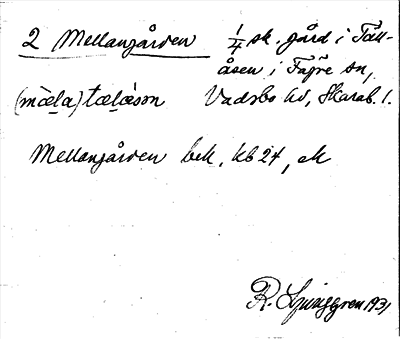 2 Mellangården 1/4 sk. gård i Täll-
åsen i Fägre sn,
(mæ̀la) tælå̀sən Vadsbo hd, Skarab. l.
Mellangården bek, kb 24, ek
R. Ljunggren 1931